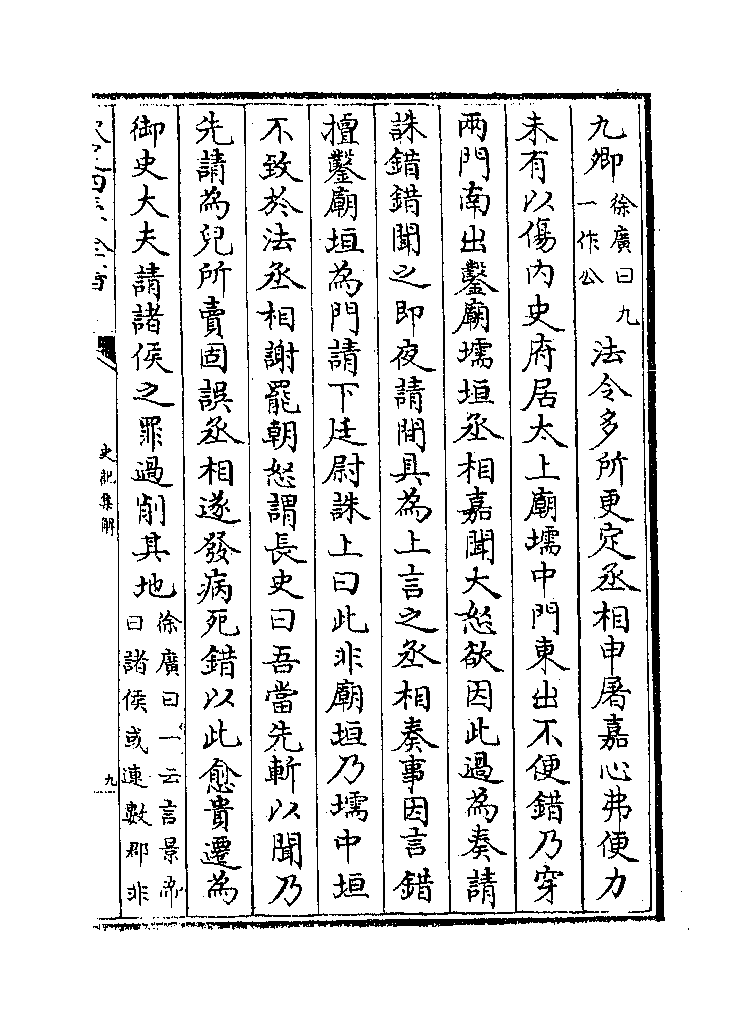 九卿徐廣曰九一作公法令多所更定丞相申屠嘉心弗便力
未有以傷内史府居太上廟壖中門東出不便錯乃穿
兩門南出鑿廟壖垣丞相嘉聞大怒欲因此過為奏請
誅錯錯聞之即夜請間具為上言之丞相奏事因言錯
擅鑿廟垣為門請下廷尉誅上曰此非廟垣乃壖中垣
不致於法丞相謝罷朝怒謂長史曰吾當先斬以聞乃
先請為兒所賣固誤丞相遂發病死錯以此愈貴遷為
御史大夫請諸侯之罪過削其地徐廣曰一云言景帝曰諸侯或連數郡非
史記集解
九